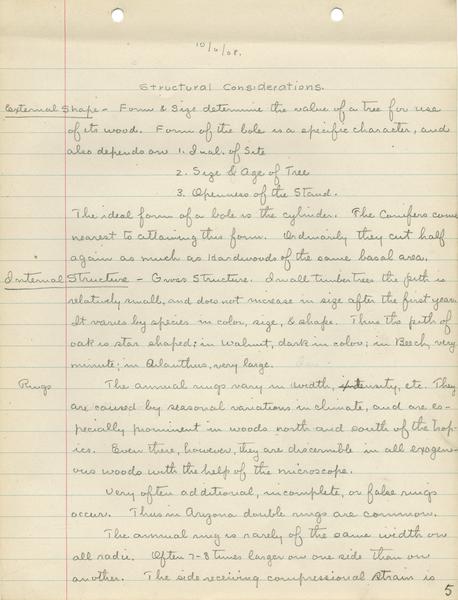 10/6/08.
Structural Considerations.
External Shape - Form & Size determine the value of a tree for use
of its wood. Form of the bole is a specific character, and
also depends on 1. Qual. of Site
2. Size & Age of Tree
3. Openness of the Stand.
The ideal form of a bole is the cylinder. The Conifers come
nearest to attaining this form. Ordinarily they cut half
again as much as Hardwoods of the same basal area.
Internal Structure - Gross Structure. In all timber trees the pith is
relatively small, and does not increase in size after the first year.
It varies by species in color, size, & shape. Thus the pith of
oak is star shaped; in Walnut, dark in color; in Beech, very
minute; in Ailanthus, very large.
Rings The annual rings vary in width, density, etc. They
are caused by seasonal variations in climate, and are es-
pecially prominent in woods north and south of the trop-
ics. Even there, however, they are discernible in all exogen-
ous woods with the help of the microscope.
Very often additional, incomplete, or false rings
occur. Thus in Aryona double rings are common.
The annual ring is rarely of the same width on
all radii. Often 7-8 times larger on one side than on
another. The side receiving compressional strain is
5